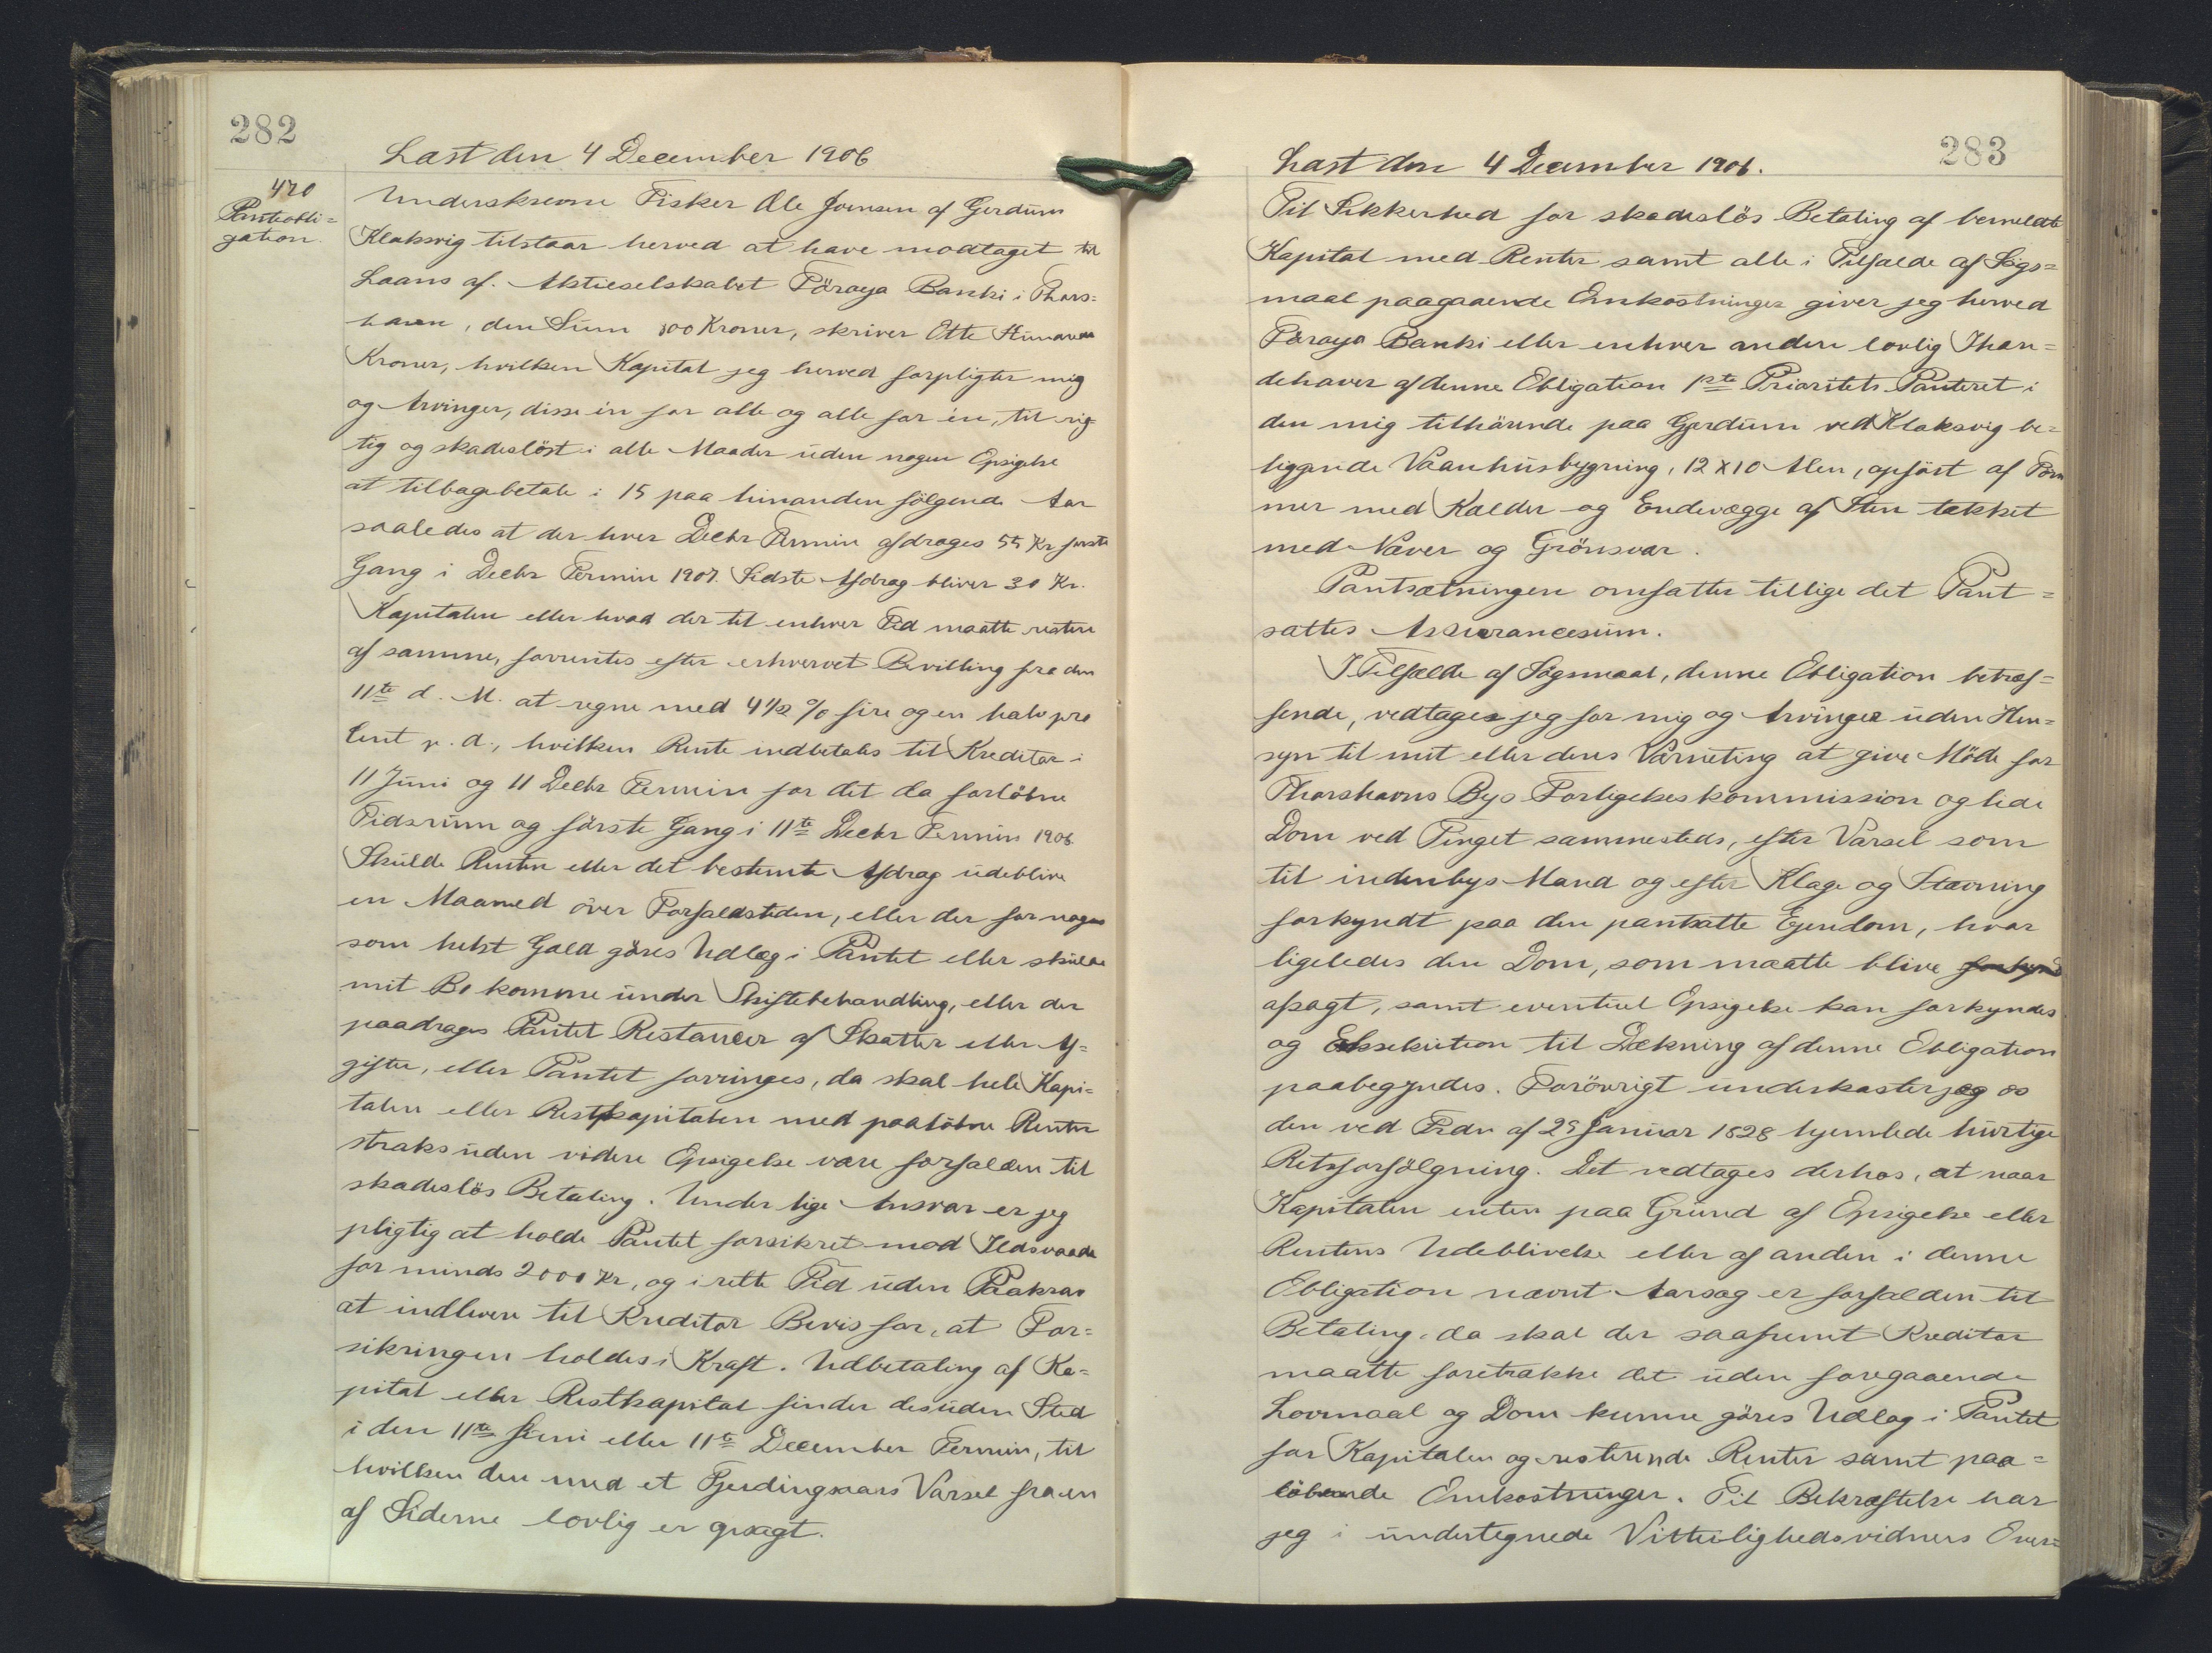 282
Læst den 4 December 1906
420
Panteobli=
gation.
Underskrevne Fisker Ole Joensen af Gerdum
Klaksvig tilstaar herved at have modtaget til
Laans af Aktieselskabet Föroya Banki i Thors=
havn, den Sum 800 Kroner, skriver Otte Hundrede
Kroner, hvilken Kapital jeg herved forpligter mig
og Arvinger, disse én for alle og alle for én, til rig=
tig og skadeslöst i alle Maader uden nogen Opsigelse
at tilbagebetale i 15 paa hinanden fölgende Aar
saaledes at der hver Decbr Termin afdrages 55 Kr förste
Gang i Decbr Termin 1907. Sidste Afdrag bliver 30 Kr.
Kapitalen eller hvad der til enhver Tid maatte restere
af samme, forrentes efter erhvervet Bevilling fra den
11te d. M. at regne med 4 1/2 % fire og en halv pro
Cent p. a., hvilken Rente indbetales til Kreditor i
11 Juni og 11 Decbr Termin for det da forlöbne
Tidsrum og förste Gang i 11te Decbr Termin 1906
Skulde Renten eller det bestemte Afdrag udeblive
en Maaned over Forfaldstiden, eller der for nogen
som helst Gæld göres Udlæg i Pantet eller skulde
mit Bo komme under Skiftebehandling, eller der
paadrages Pantet Restancer af Skatter eller Af=
gifter, eller Pantet forringes, da skal hele Kapi=
talen eller Restkapitalen med paalöbne Renter
straks uden videre Opsigelse være forfalden til
skadeslös Betaling. Under lige Ansvar er jeg
pligtig at holde Pantet forsikret mod Ildsvaade
for minds 2000 Kr, og i rette Tid uden Paakrav
at indlevere til Kreditor Bevis for, at For=
sikringen holdes i Kraft. Udbetaling af Ka=
pital eller Restkapital finder desuden Sted
i den 11te Juni eller 11te December Termin, til
hvilken den med et Fjerdingaars Varsel fra en
af Siderne lovlig er opsagt.
283
Læst den 4 December 1906.
Til Sikkerhed for skadeslös Betaling af bemeldte
Kapital med Renter samt alle i Tilfælde af Søgs=
maal paagaaende Omkostninger giver jeg herved
Föroya Banki eller enhver anden lovlig Ihæn=
dehaver af denne Obligation 1ste Prioritets Panteret i
den mig tilhörende paa Gjerdum ved Klaksvig be=
liggende Vaanhusbygning, 12 x 10 Alen, opfört af Töm
mer med Kælder og Endevægge af Sten tækket
med Næver og Grönsvær.
Pantsætningen omfatter tillige det Pant=
sattes Assurancesum.
I Tilfælde af Søgsmaal, denne Obligation betræf=
fende, vedtager jeg for mig og Arvinger uden Hen=
syn til mit eller deres Værneting at give Möde for
Thorshavns Bys Forligelseskommission og lide
Dom ved Tinget sammesteds, efter Varsel som
til indenbys Mand og efter Klage og Stævning
forkyndt paa den pantsatte Ejendom, hvor
ligeledes den Dom, som maatte blive forkynd
afsagt, samt eventuel Opsigelse kan forkyndes
og Eksekution til Dækning af denne Obligation
paabegyndes. Forövrigt underkaster jeg os
den ved Frdn af 29 Januar 1828 hjemlede hurtige
Retsforfölgning. Det vedtages derhos, at naar
Kapitalen enten paa Grund af Opsigelse eller
Rentens Udeblivelse eller af anden i denne
Obligation nævnt Aarsag er forfalden til
Betaling, da skal der saafremt Kreditor
maatte foretrække det uden foregaaende
Lovmaal og Dom kunne göres Udlæg i Pantet
for Kapitalen og resterende Renter samt paa=
löbende Omkostninger. Til Bekræftelse har
jeg i undertegnede Vitterlighedsvidners Over=